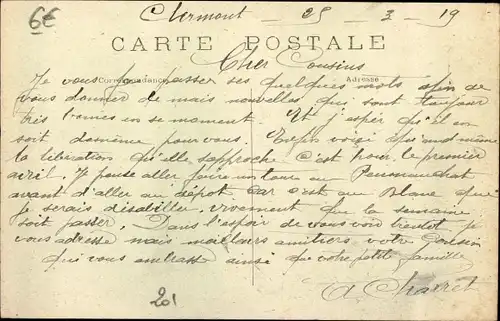 6€
Clermont - 25 - 3 - 19
CARTE POSTALE
Cher Cousins
Correspondance
Adresse
Je vous fai passer ses quelques mots afin de
vous donner de mais nouvelles qui sont toujour
très bonnes en se moment. Et j'espér qu'il en
soit de même pour vous. Enfin voici quand même
la libération qu'elle s'approche c'est pour le premier
avril. Je pense aller faire un tour au
avant d'aller au dépot car c'est au Blanc que
je serais désabiller, vivement que la semaine
soit passer. Dans l'espoir de vous voir bientot je
vous adresse mais meilleurs amitiers votre Cousin
qui vous embrasse ainsi que votre petite famille
A Charret
201